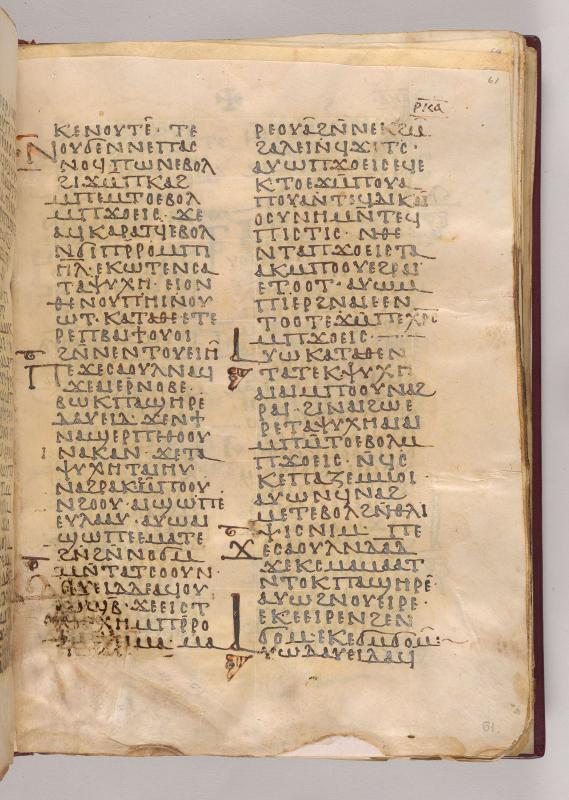 61
ⲣ̅ⲕ̅ⲁ̅
ⲕⲉⲛⲟⲩⲧⲉ̅· ⲧⲉ
ⲛⲟⲩϭⲉⲛⲛⲉⲡⲁⲥ
ⲛⲟϥⲡⲱⲛⲉⲃⲟⲗ
ϩⲓϫⲙ̅ⲡⲕⲁϩ
ⲙⲡⲉⲙⲧⲟⲉⲃⲟⲗ
ⲙⲡϫⲟⲉⲓⲥ· ϫⲉ
ⲁϥⲕⲁⲣⲁⲧϥⲉⲃⲟⲗ
ⲛϭⲓⲡⲣⲣⲟⲙⲡⲓ
ⲏⲗ· ⲉⲕⲱⲧⲉⲛⲥⲁ
ⲧⲁⲯⲩⲭⲏ· ⲉⲓⲟⲛ
ⲑⲉⲛⲟⲩⲡⲏⲓⲛⲟⲩ
ⲱⲧ· ⲕⲁⲧⲁⲑⲉⲉⲧⲉ
ⲣⲉⲡⲃⲁⲓϯⲟⲩⲟⲓ
ϩⲛⲛⲉⲛⲧⲟⲩⲉⲓⲏ̅
ⲡⲉϫⲉⲥⲁⲟⲩⲗⲛⲁϥ
ϫⲉⲁⲓⲉⲣⲛⲟⲃⲉ·
ⲃⲱⲕⲡⲁϣⲏⲣⲉ
ⲇⲁⲩⲉⲓⲇ· ϫⲉⲛϯ
ⲛⲁϣⲉⲣⲡⲉⲑⲟⲟⲩ
ⲛⲁⲕⲁⲛ· ϫⲉⲧⲁ
ⲯⲩⲭⲏⲧⲁⲓⲏⲩ
ⲛⲁϩⲣⲁⲕⲙ̅ⲡⲟⲟⲩ
ⲛϩⲟⲟⲩ· ⲁⲓϣⲱⲡⲉ
ⲉⲩⲗⲁⲁⲩ· ⲁⲩⲱⲁⲓ
ϣⲱⲡⲉⲉⲙⲁⲧⲉ
ϩⲛϩⲛ̅ⲛⲟϭⲙ̅
ⲙⲛ̅ⲧⲁⲧⲥⲟⲟⲩⲛ·
ⲇⲁⲩⲉⲓⲇⲇⲉⲁϥⲟⲩ
ⲱϣⲃ· ϫⲉⲉⲓⲥⲧ
ⲙⲡⲣⲣⲟ
ⲙⲁ
ⲣⲉⲟⲩⲁ̅ϩⲛ̅ⲛⲉⲕϩⲙ̅
ϩⲁⲗⲉⲓⲛϥϫⲓⲧⲥ·
ⲁⲩⲱⲡϫⲟⲉⲓⲥⲉϥⲉ
ⲕⲧⲟⲉϫⲙ̅ⲡⲟⲩⲁ
ⲡⲟⲩⲁⲛⲧϥⲇⲓⲕⲁⲓ̅
ⲟⲥⲩⲛⲏⲙⲛ̅ⲧⲉϥ
ⲡⲓⲥⲧⲓⲥ· ⲛⲑⲉ
ⲛⲧⲁⲡϫⲟⲉⲓⲥⲧⲁ
ⲁⲕⲙⲡⲟⲟⲩⲉϩⲣⲁⲓ
ⲉⲧⲟⲟⲧ· ⲁⲩⲱⲙ
ⲡⲓⲉⲣϩⲛⲁⲓⲉⲉⲛ
ⲧⲟⲟⲧⲉϫⲙ̅ⲡⲉⲭⲣⲥ̅
ⲙⲡϫⲟⲉⲓⲥ·
ⲁⲩⲱⲕⲁⲧⲁⲑⲉⲛ
ⲧⲁⲧⲉⲕⲯⲩⲭⲏ
ⲁⲓⲁⲓⲙⲡⲟⲟⲩⲛⲁϩ
ⲣⲁⲓ· ϩⲓⲛⲁⲓϩⲱⲉ
ⲣⲉⲧⲁⲯⲩⲭⲏⲁⲓⲁⲓ
ⲙⲡⲙ̅ⲧⲟⲉⲃⲟⲗⲙ
ⲡϫⲟⲉⲓⲥ· ⲛϥⲥ
ⲕⲉⲡⲁⲍⲉⲙⲙⲟⲓ·
ⲁⲩⲱⲛϥⲛⲁϩ
ⲙⲉⲧⲉⲃⲟⲗϩⲛ̅ⲑⲗⲓ
ⲯⲓⲥⲛⲓⲙ· ⲡⲉ
ϫⲉⲥⲁⲟⲩⲗⲛⲇⲁⲇ
ϫⲉⲕⲥⲙⲁⲙⲁⲁⲧ
ⲛⲧⲟⲕⲡⲁϣⲏⲣⲉ·
ⲁⲩⲱϩⲛⲟⲩⲉⲓⲣⲉ·
ⲉⲕⲉⲉⲓⲣⲉⲛϩⲉⲛ
ϭⲟⲙⲉⲕⲉϭⲙϭⲟⲙ̅:
ⲁⲩⲱⲇⲁⲩⲉⲓⲇⲁϥ
61.